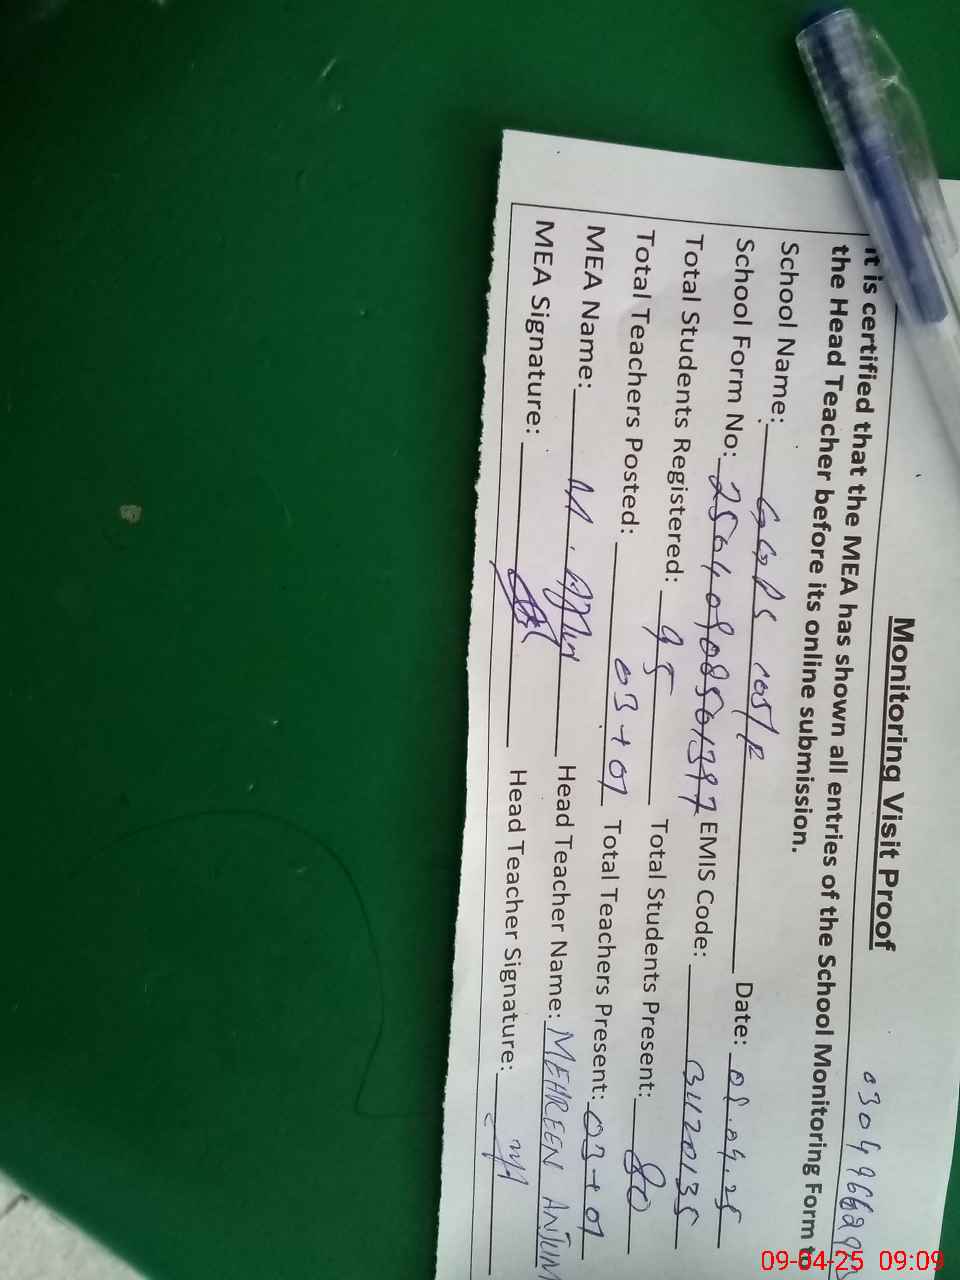 Monitoring Visit Proof
It is certified that the MEA has shown all entries of the School Monitoring Form to
the Head Teacher before its online submission.
School Name: GGPS 105/P Date: 09.04.25
School Form No: EMIS Code: 31120135
Total Students Registered: 95 Total Students Present: 80
Total Teachers Posted: 03+01 Total Teachers Present: 03+01
MEA Name: M. Head Teacher Name: MEHREEN ANJUM
MEA Signature: Head Teacher Signature:
09-04-25 09:09